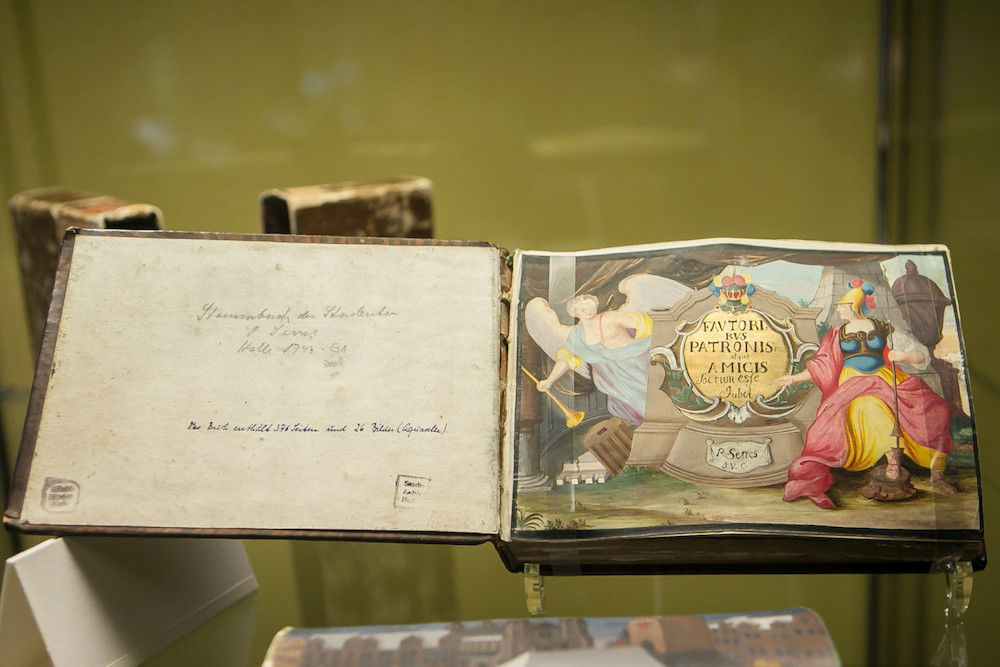 Stammbuch des Studenten
P. Serres
Halle 17
Das Buch enthält 376 Seiten und 26 Bilder (Aquarelle).
Stadt-
Archiv
FAVTORI
BVS
PATRONIS
atque
AMICIS
Sacrum esse
Jubet
P. Serres
J. V. C.